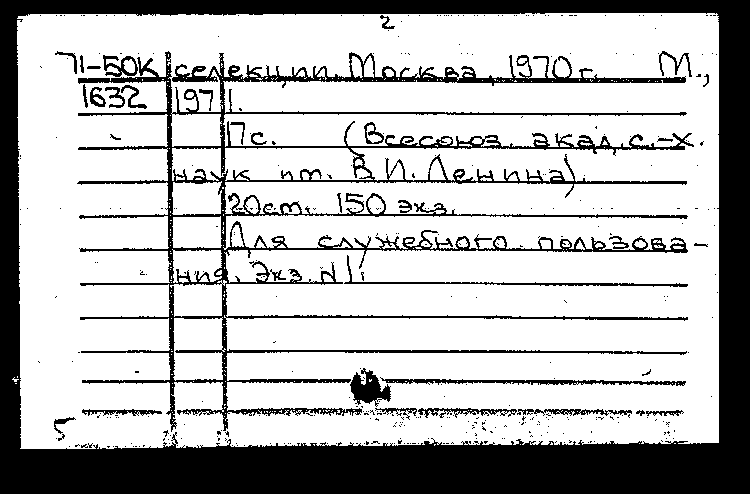 2
71-50К селекции. Москва, 1970 г. М.,
1632 1971.
17с. (Всесоюз. акад. с.-х.
наук им. В.И. Ленина).
20см. 150 экз.
Для служебного пользова-
ния. Экз. №1.
5